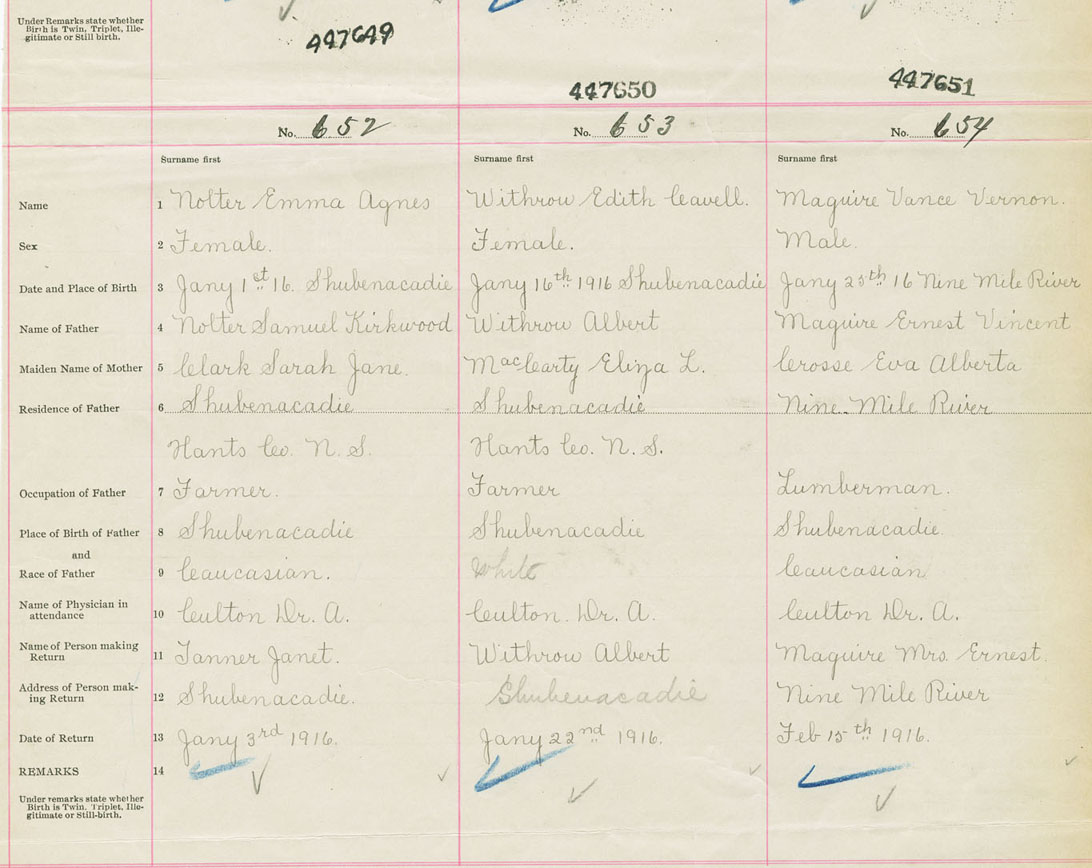 Under Remarks state whether
Birth is Twin, Triplet, Ille-
gitimate or Still birth.
447649
447650
447651
No. 652 No. 653 No. 654
Surname first Surname first Surname first
Name 1 Nolter Emma Agnes Withrow Edith Cavell. Maguire Vance Vernon.
Sex 2 Female. Female. Male.
Date and Place of Birth 3 Jany 1st 16. Shubenacadie Jany 16th 1916 Shubenacadie Jany 25th 16 Nine Mile River
Name of Father 4 Nolter Samuel Kirkwood Withrow Albert Maguire Ernest Vincent
Maiden Name of Mother 5 Clark Sarah Jane. MacCarty Eliza L. Crosse Eva Alberta
Residence of Father 6 Shubenacadie Shubenacadie Nine Mile River
Hants Co. N. S. Hants Co. N. S.
Occupation of Father 7 Farmer. Farmer Lumberman.
Place of Birth of Father 8 Shubenacadie Shubenacadie Shubenacadie
and
Race of Father 9 Caucasian. White Caucasian
Name of Physician in
attendance 10 Culton Dr. A. Culton. Dr. A. Culton Dr. A.
Name of Person making
Return 11 Tanner Janet. Withrow Albert Maguire Mrs. Ernest.
Address of Person mak-
ing Return 12 Shubenacadie. Shubenacadie Nine Mile River
Date of Return 13 Jany 3rd 1916. Jany 22nd 1916. Feb 15th 1916.
REMARKS 14
Under remarks state whether
Birth is Twin, Triplet, Ille-
gitimate or Still-birth.